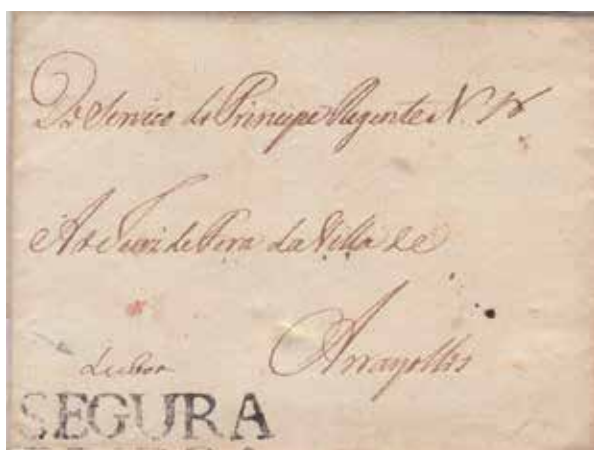 Do Serviço do Principe Regente N. Sr
Ao Juiz de Fora da Villa de
Arrayollos
Lisboa
SEGURA